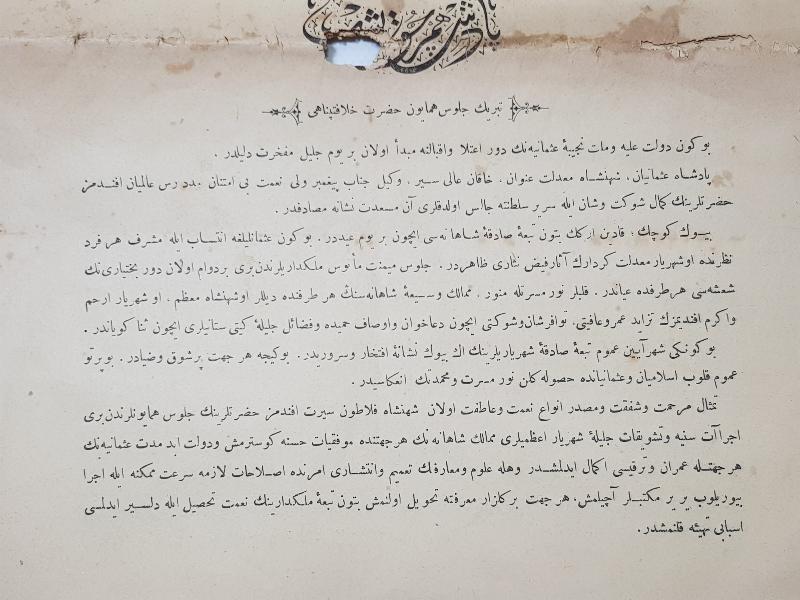 پادشاهم چوق یشا
تبریك جلوس همایون حضرت خلافتپناهی
بو كون دولت علیه وملت نجیبهٔ عثمانیه‌نك دور اعتلا واقبالنه مبدأ اولان بر یوم جلیل مفخرت دلیلدر .
پادشاه عثمانیان ، شهنشاه معدلت عنوان ، خاقان عالی سیر ، وكیل جناب پیغمبر ولی نعمت بی امتنان مدد رس عالمیان افندمز
حضرتلرینك كمال شوكت وشان ایله سریر سلطنته جالس اولدقلری آن مسعدت نشانه مصادفدر .
بیوك كوچك ؛ قادین اركك بتون تبعهٔ صادقهٔ شاهانه‌سی ایچون بر یوم عیددر . بو كون عثمانلیلغه انتساب ایله مشرف هر فرد
نظرنده او شهریار معدلت كردارك آثار فیض نثاری ظاهردر . جلوس میمنت مأنوس ملكداریلرندن بری بردوام اولان دور بختیاری‌نك
شعشعه‌سی هر طرفده عیاندر . قلبلر نور مسرتله منور ، ممالك وسیعهٔ شاهانه‌سنك هر طرفنده دیللر او شهنشاه معظم ، او شهریار ارحم
واكرم افندیمزك تزاید عمر وعافیتی ، توافر شان وشوكتی ایچون دعاخوان واوصاف حمیده وفضائل جلیلهٔ كیتی ستانیلری ایچون ثنا كویاندر .
بو كونكی شهرآیین عموم تبعهٔ صادقهٔ شهریاریلرینك اك بیوك نشانهٔ افتخار وسروریدر . بو كیجه هر جهت پر شوق وضیادر . بو پرتو
عموم قلوب اسلامیان وعثمانیانده حصوله كلن نور مسرت ومحمدتك انعكاسیدر .
تمثال مرحمت وشفقت ومصدر انواع نعمت وعاطفت اولان شهنشاه فلاطون سیرت افندمز حضرتلرینك جلوس همایونلرندن بری
اجراآت سنیه وتشویقات جلیلهٔ شهریار اعظمیلری ممالك شاهانه‌نك هر جهتنده موفقیات حسنه كوسترمش ودولت ابد مدت عثمانیه‌نك
هر جهتله عمران وترقیسی اكمال ایدلمشدر وهله علوم ومعارفك تعمیم وانتشاری امرنده اصلاحات لازمه سرعت ممكنه ایله اجرا
بیوریلوب یر یر مكتبلر آچیلمش ، هر جهت بر كلزار معرفته تحویل اولنمش بتون تبعهٔ ملكدارینك نعمت تحصیل ایله دلسیر ایدلمسی
اسبابی تهیئه قلنمشدر .